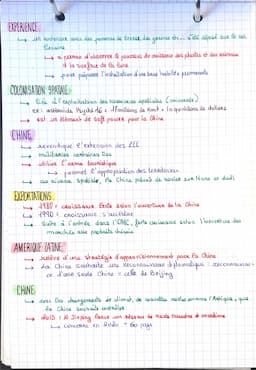 EXPERIENCE
↳ un container avec des pommes de terre, des graines etc... s'est déposé sur le sol
lunaire
↳ a permis d'observer le processus de croissance des plantes et des animaux
à la surface de la lune
↳ peut préparer l'installation d'une base habitée permanente
COLONISATION SPATIALE
↳ liée à l'exploitation des ressources spatiales (minerais)
ex: astéroïde Psyché 16 = 1 millions de km² = 1 quadrillions de dollars
↳ est un élément de soft power pour la Chine
CHINE
↳ revendique l'extension des ZEE
↳ militarise certaines îles
↳ utilise l'arme touristique
↳ permet l'appropriation des territoires
↳ au niveau spatial, la Chine prévoit de rester sur Mars et
EXPORTATIONS
↳ 1980 = croissance lente selon l'ouverture de la Chine
↳ 1990 = croissance s'accélère
↳ suite à l'entrée dans l'OMC, forte croissance selon l'ouverture des
marchés aux produits chinois
AMERIQUE LATINE
↳ relève d'une stratégie d'approvisionnement pour la Chine
↳ La Chine souhaite une reconnaissance diplomatique : reconnaissance
d'une seule Chine = celle de Beijing
CHINE
↳ avec les changements de climat, de nouvelles routes comme l'Arctique, que
la Chine souhaite contrôler
↳ 2013 : Xi Jinping lance un réseau de routes terrestres et maritimes
↳ concerne en 2020 = 60 pays